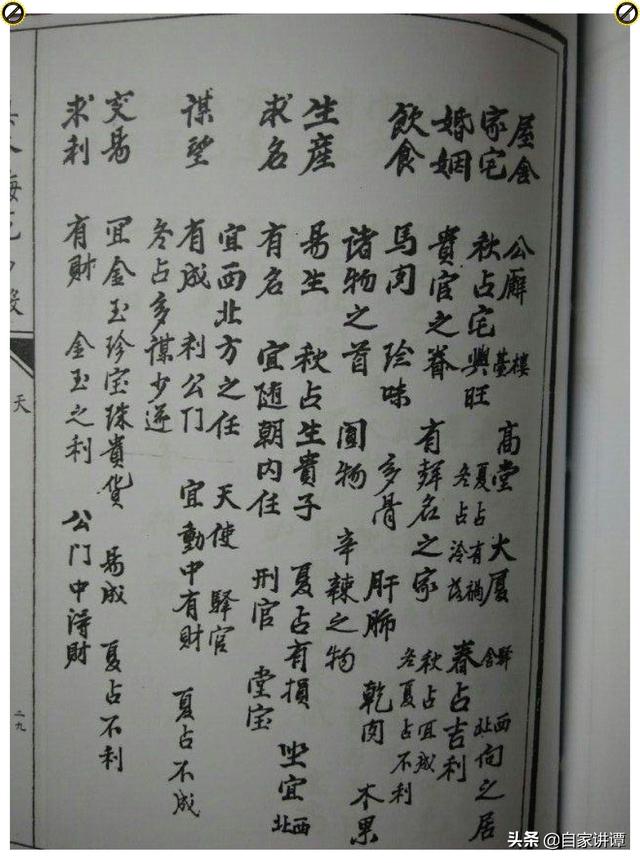 屋舍 公廨 樓臺 高堂 大厦 驛舍 西北向之居
家宅 秋占宅興旺 夏占有禍 冬占冷落 春占吉利
婚姻 貴官之眷 有聲名之家 秋占宜成 冬夏占不利
飲食 馬肉 珍味 多骨 肝肺 乾肉 木果
諸物之首 圓物 辛辣之物
生産 易生 秋占生貴子 夏占有損 坐宜西北
求名 有名 宜随朝内任 刑官 堂宝
宜西北方之任 天使 驛官
謀望 有成 利公门 宜動中有財 夏占不成
冬占多謀少遂
交易 宜金玉珍宝珠貴貨 易成 夏占不利
求利 有財 金玉之利 公门中得財
天
二九
头条 @自家讲谭